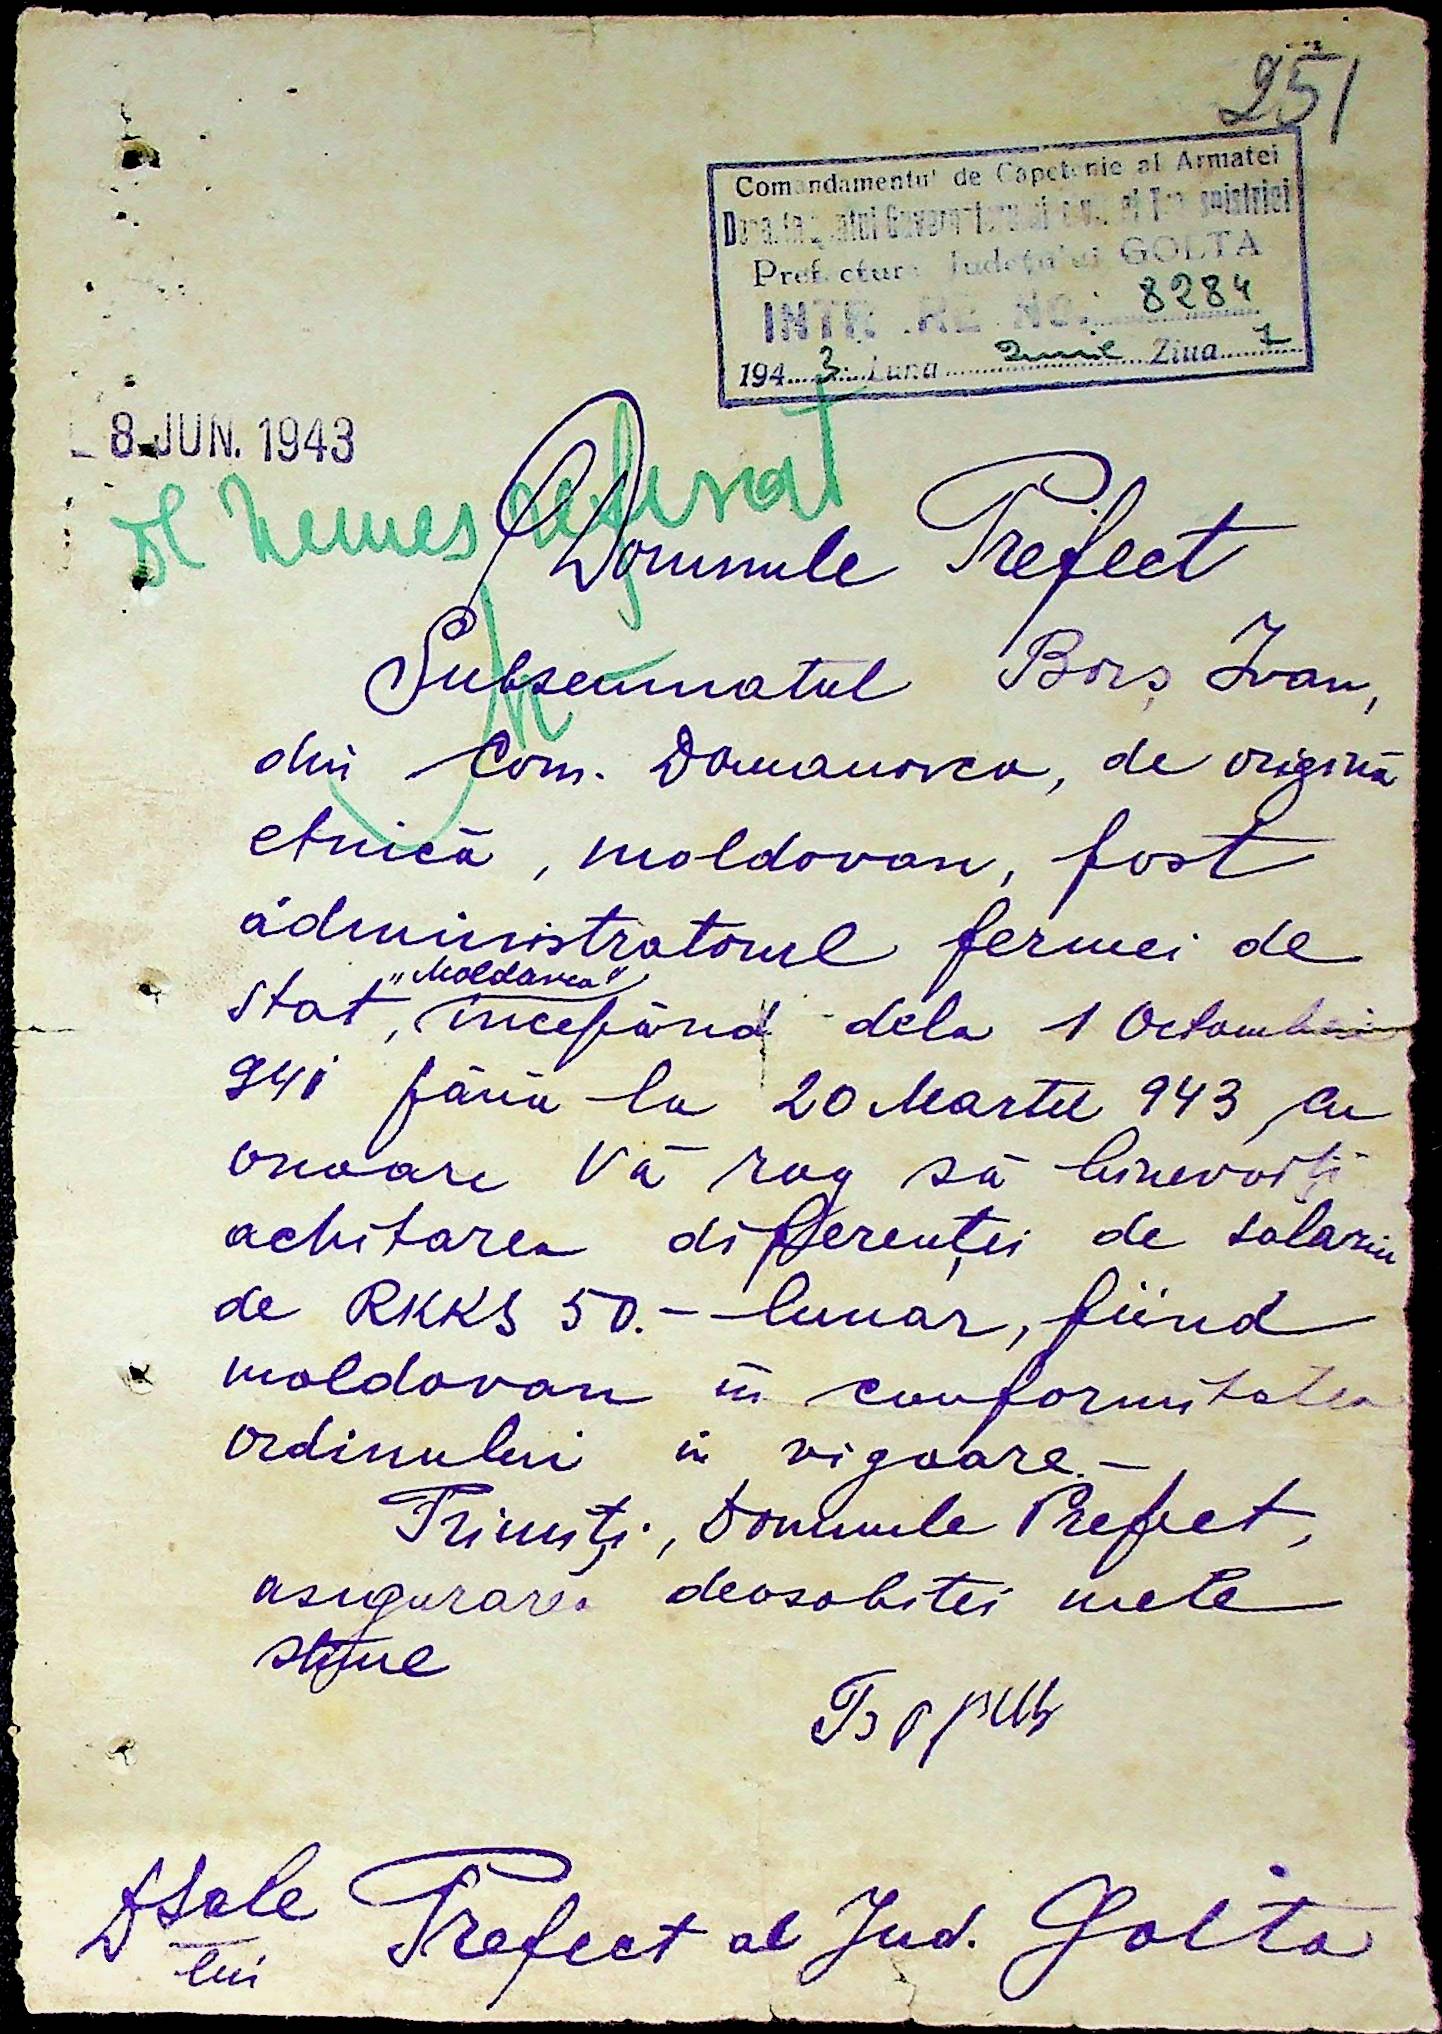 251
Comandamentul de Capetenie al Armatei
Prefectura Județului GOLTA
INTRARE No. 8284
194 3 Luna Iunie Ziua 7
8 JUN. 1943
Dl Nemeș refuzat
Domnule Prefect
Subsemnatul Borș Ivan,
din Com. Domanovca, de origină
etnică, moldovan, fost
administratorul fermei de
„Moldavca”
stat, începând dela 1 Octombrie
941 până la 20 Martie 943 cu
onoare Vă rog să binevoiți
achitarea diferenței de salariu
de RKKS 50.- lunar, fiind
moldovan în conformitatea
ordinului în vigoare.-
Primiți, Domnule Prefect,
asigurarea deosebitei mele
stime
Борш
DSale Prefect al Jud. Golta
lui